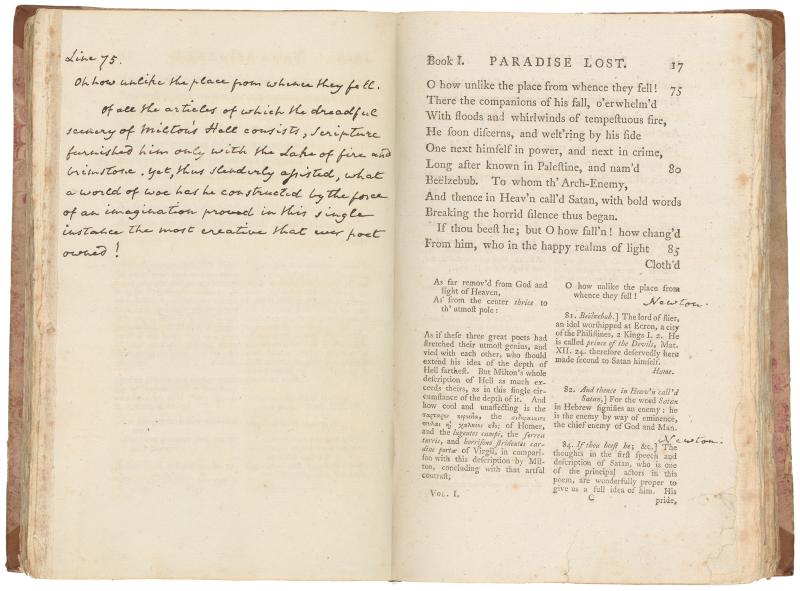 Line 75.
Oh how unlike the place from whence they fell.
Of all the articles of which the dreadful
scenery of Milton's Hell consists, Scripture
furnished him only with the Lake of fire and
brimstone. Yet, thus slenderly assisted, what
a world of woe has he constructed by the force
of an imagination proved in this single
instance the most creative that ever poet
owned!
Book I. PARADISE LOST. 17
O how unlike the place from whence they fell! 75
There the companions of his fall, o'erwhelm'd
With floods and whirlwinds of tempestuous fire,
He soon discerns, and welt'ring by his side
One next himself in power, and next in crime,
Long after known in Palestine, and nam'd 80
Beëlzebub. To whom th' Arch-Enemy,
And thence in Heav'n call'd Satan, with bold words
Breaking the horrid silence thus began.
If thou beest he; but O how fall'n! how chang'd
From him, who in the happy realms of light 85
Cloth'd
As far remov'd from God and
light of Heaven,
As from the center thrice to
th' utmost pole:
As if these three great poets had
stretched their utmost genius, and
vied with each other, who should
extend his idea of the depth of
Hell farthest. But Milton's whole
description of Hell as much ex-
ceeds theirs, as in this single cir-
cumstance of the depth of it. And
how cool and unaffecting is the
of Homer,
and the lugentes campi, the ferrea
turris, and horrisono stridentes car-
dine portæ of Virgil, in compari-
son with this description by Mil-
ton, concluding with that artful
contrast;
VOL. I.
O how unlike the place from
whence they fell!
Newton.
81. Beëlzebub.] The lord of flies,
an idol worshipped at Ecron, a city
of the Philistines, 2 Kings I. 2. He
is called prince of the Devils, Mat.
XII. 24. therefore deservedly here
made second to Satan himself.
Hume.
82. And thence in Heav'n call'd
Satan,] For the word Satan
in Hebrew signifies an enemy: he
is the enemy by way of eminence,
the chief enemy of God and Man.
Newton.
84. If thou beest he; &c.] The
thoughts in the first speech and
description of Satan, who is one
of the principal actors in this
poem, are wonderfully proper to
give us a full idea of him. His
C pride,